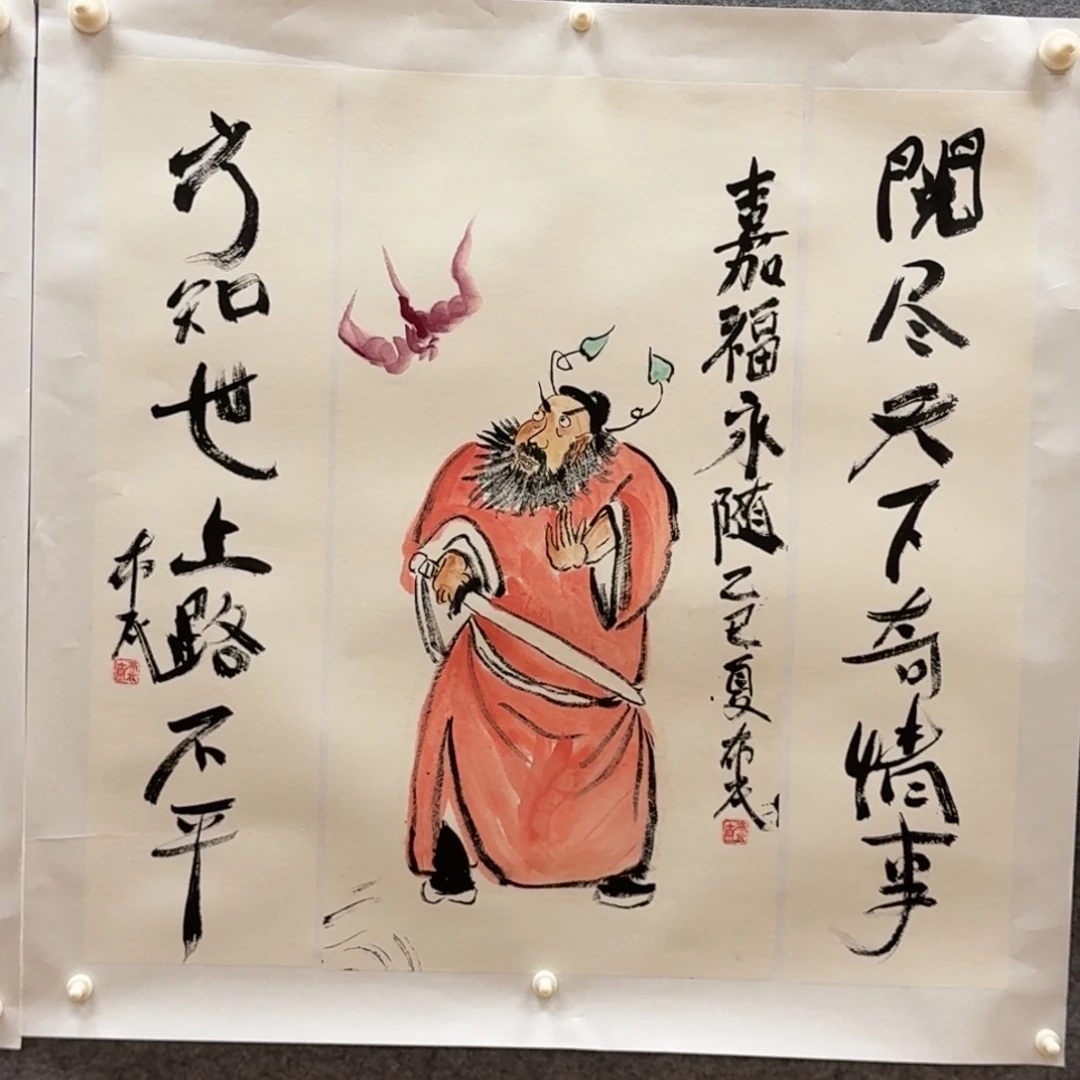 閱尽天下奇情事
嘉福永随乙巳夏
方知世上路不平